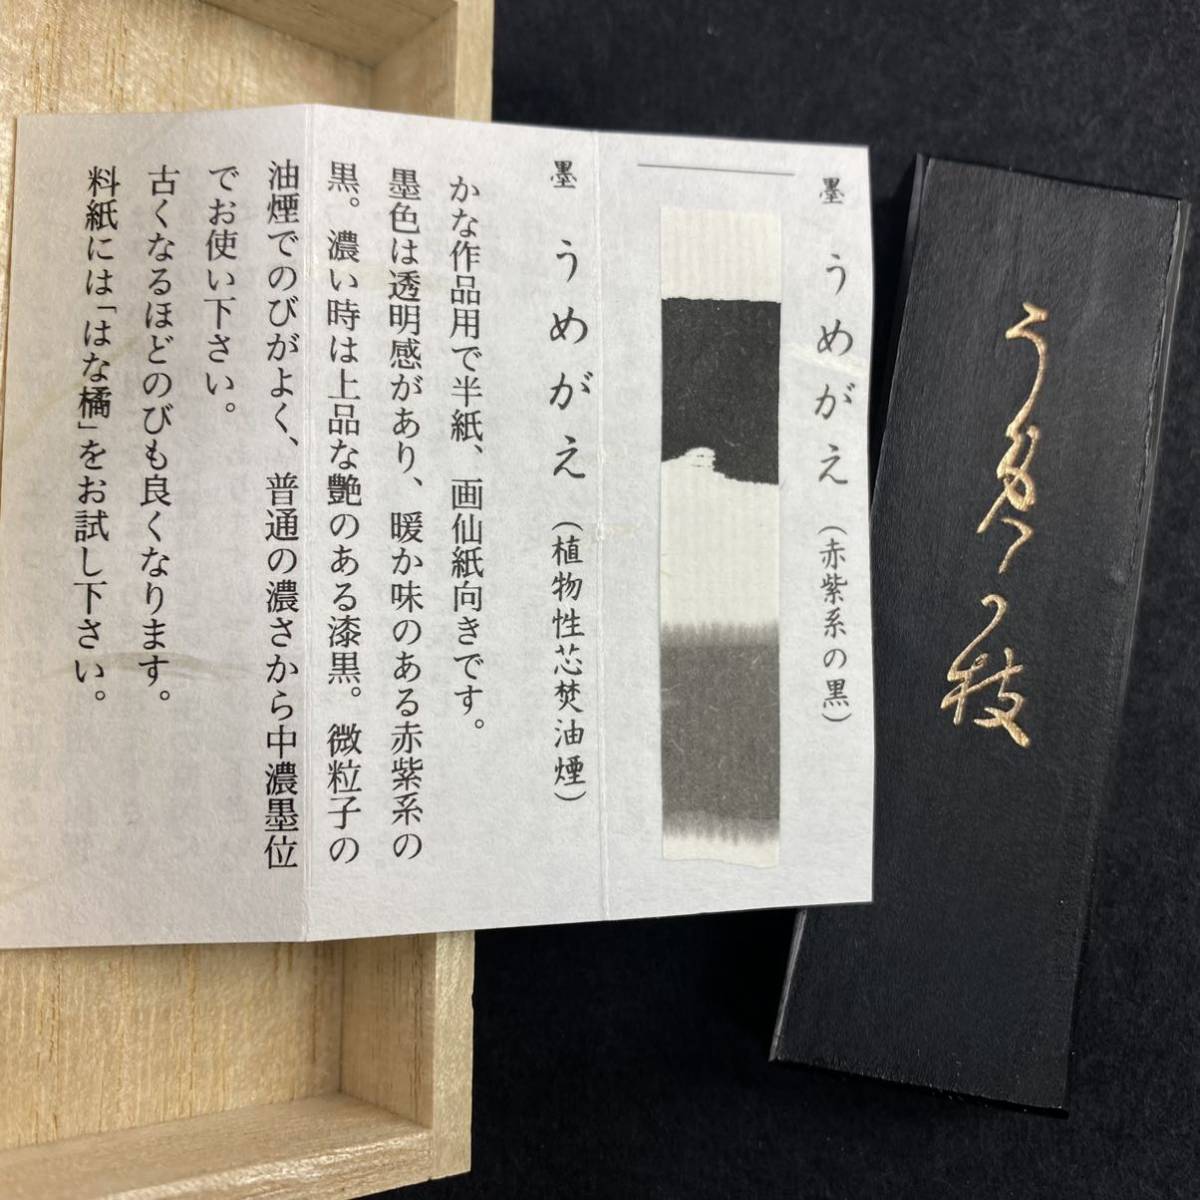 墨 うめがえ（赤紫系の黒）
墨 うめがえ（植物性芯焚油煙）
かな作品用で半紙、画仙紙向きです。
墨色は透明感があり、暖か味のある赤紫系の
黒。濃い時は上品な艶のある漆黒。微粒子の
油煙でのびがよく、普通の濃さから中濃墨位
でお使い下さい。
古くなるほどのびも良くなります。
料紙には「はな橘」をお試し下さい。